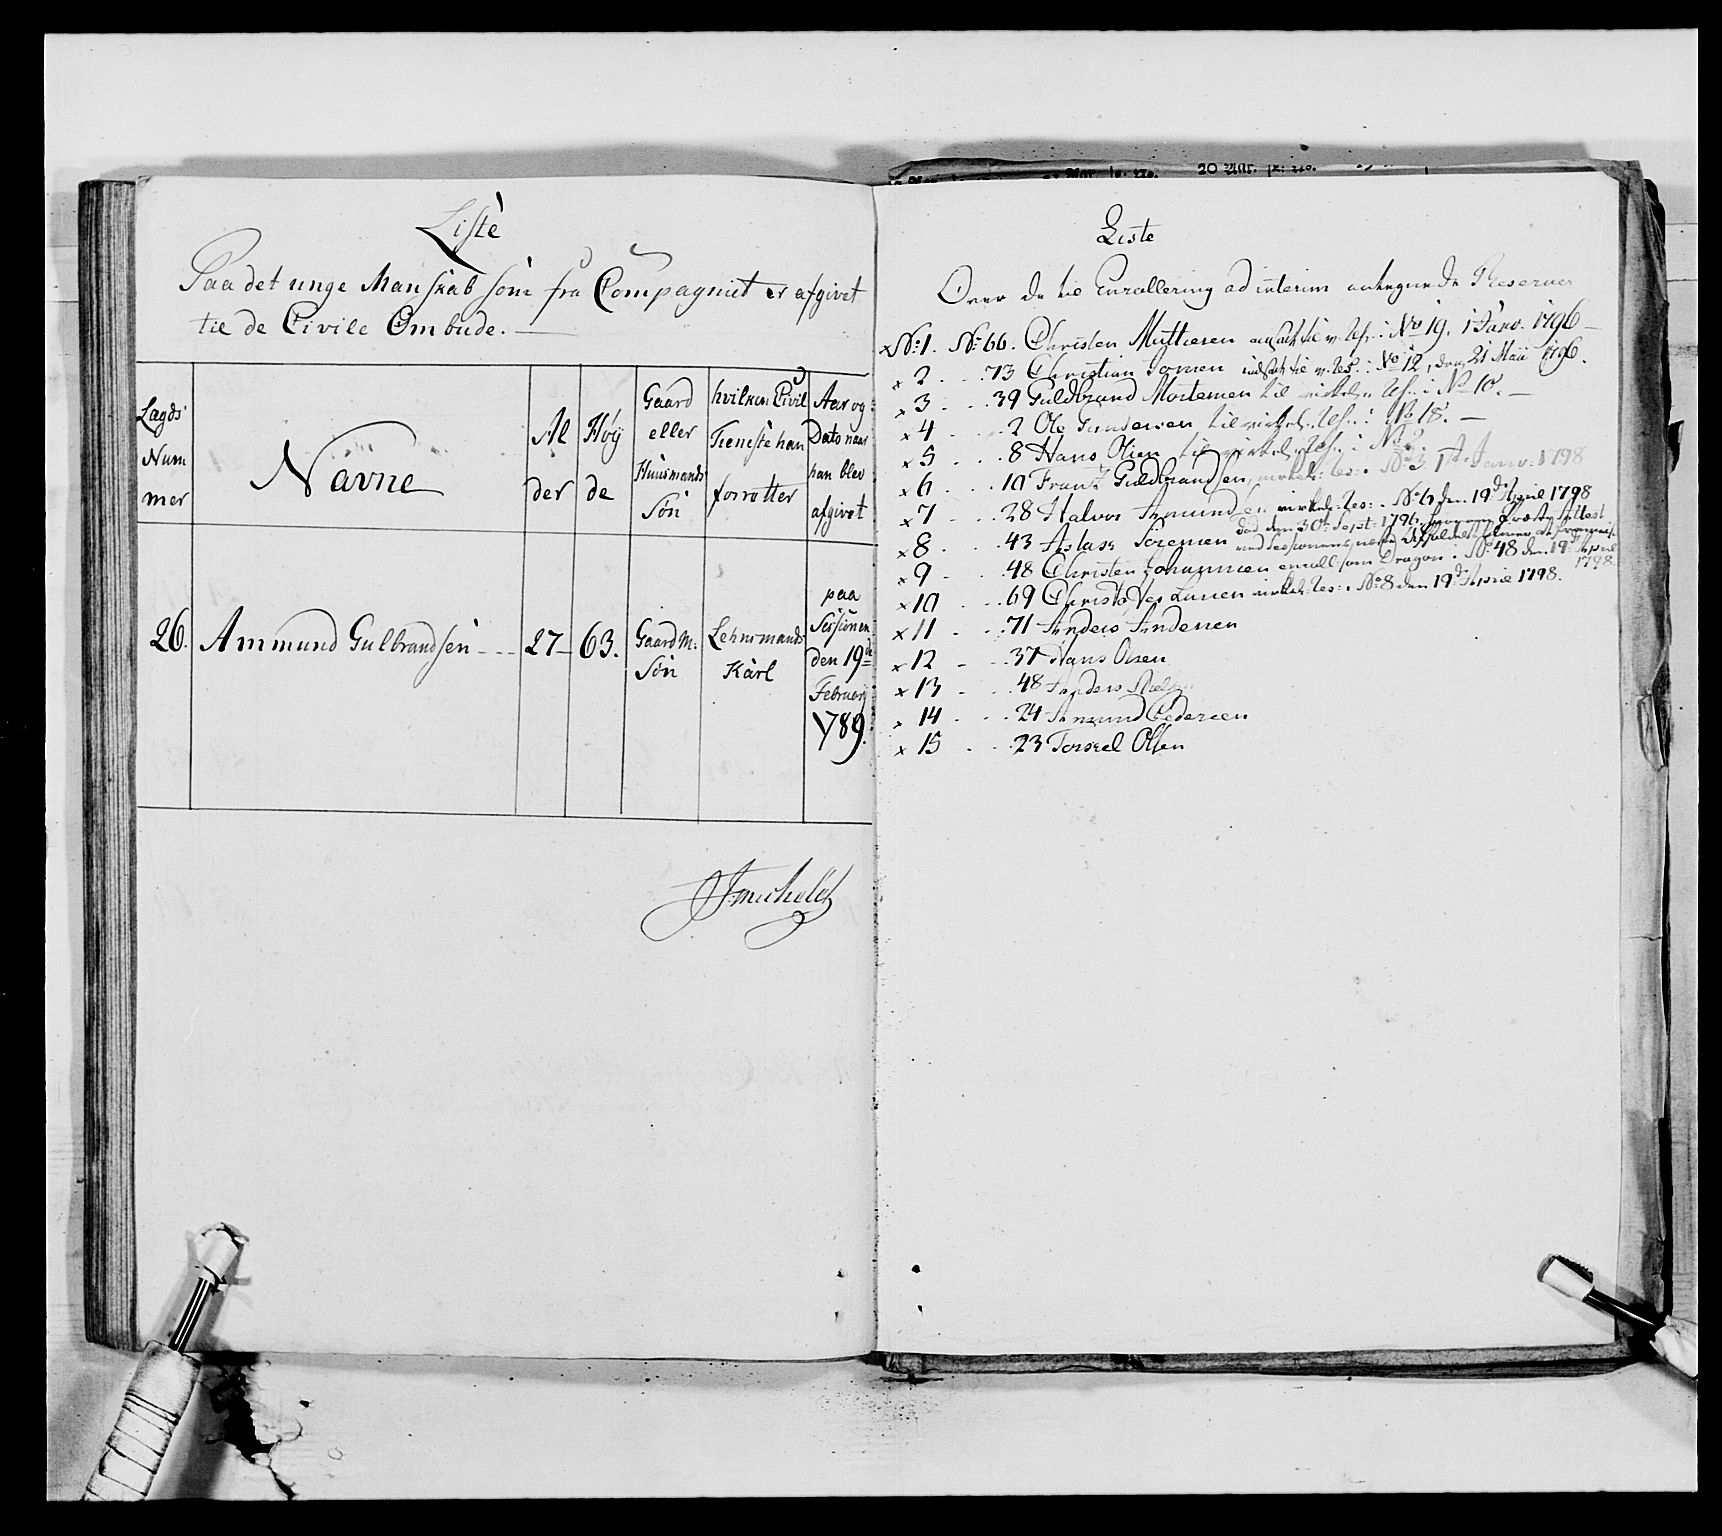 Liste
Paa det unge Manskab som fra Compagniet er afgivet
til de Civile Ombude.
Lægds Nummer
Navne
Alder
Høyde
Gaard eller Huusmands Søn
hvilken Civil Tieneste han forretter
Aar og Dato naar han blev afgivet
26. Ammund Gulbrandsen --- 27 63. Gaardm: Søn Lehnsmands Karl paa Sessionen den 19de Februarij 1789.
20 Mar.
Liste
Over de til Enrollering ad interim antegnede Reserver
× No: 1. No 66. Christen Mattiesen No 19. 1 Janv. 1796
× 2 73 Christian indsat til No 12, den 21 Maii 1796.
× 3 39 Guldbrand Mortensen til No 10.
× 4 2 Ole Gundersen til No 18.
× 5 8 Hans Olsen til No
× 6 10 Franz Guldbrandsen No 3 1ste Janv: 1798
× 7 28 Halvor Amundsen No 6 den 19de April 1798
× 8 43 Aslack Sørensen død den 30te Sept: 1796
× 9 48 Christen Johannesen enroll: som Dragon No 48 den 19de April 1798.
× 10 69 Christofer Larsen No 8 den 19de April 1798.
× 11 71 Anders Andersen
× 12 37 Hans Olsen
× 13 48 Anders
× 14 24 Amund Pedersen
× 15 23 Torkel Olsen